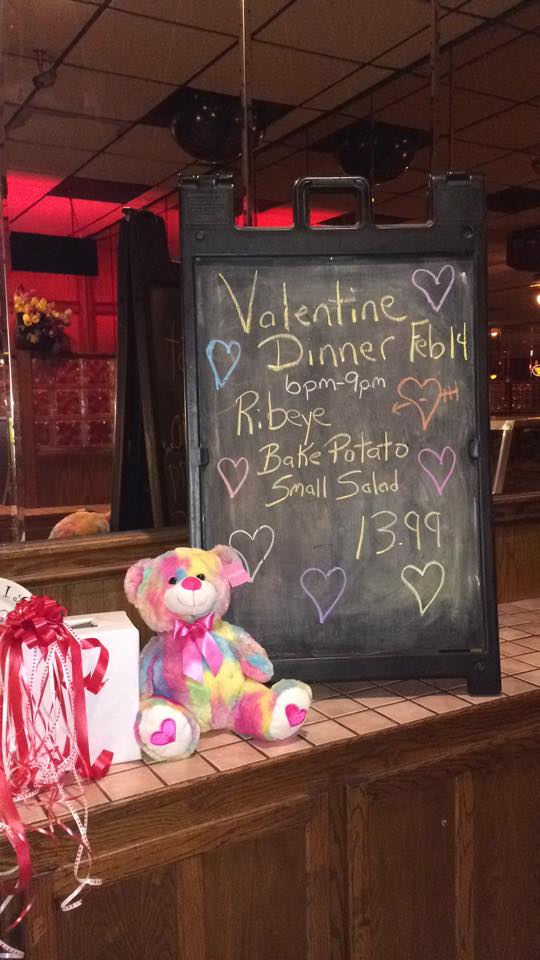 Valentine
Dinner Feb 14
6pm-9pm
Ribeye
Bake Potato
Small Salad
13.99